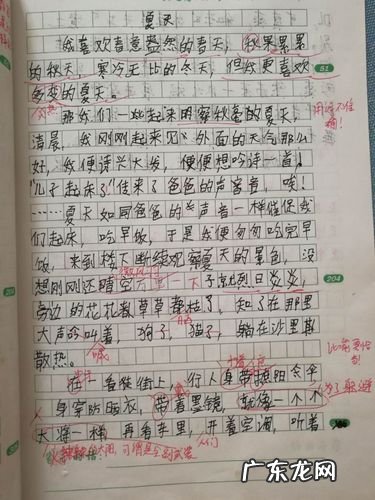 夏天
我喜欢春意盎然的春天,秋果累累
的秋天,寒冷无比的冬天,但我更喜欢
多变的夏天。
那我们一起来明察秋毫的夏天,
清晨,我刚刚起来见外面的天气那么
好,我便诗兴大发,便便想吟诗一首,
“儿子起床了”传来了爸爸的声音,唉!
……夏天如同爸爸的声音一样催促我
们起床,吃早饭,于是我便匆匆吃完早
饭,来到楼下断续观察夏天的景色,没
想刚刚还晴空万里一下子烈日炎炎,
旁边的花花草草都枯了,知了在那里
大声的叫着,狗子,猫子,躺在沙里
散热。
在一看街上,行人身带遮阳伞
身穿防晒衣,带着墨镜,就像一个个
大将一样,再看车里,开着空调,听着
用词不准确!
喊
为了躲避
人们
51
204
广东龙网